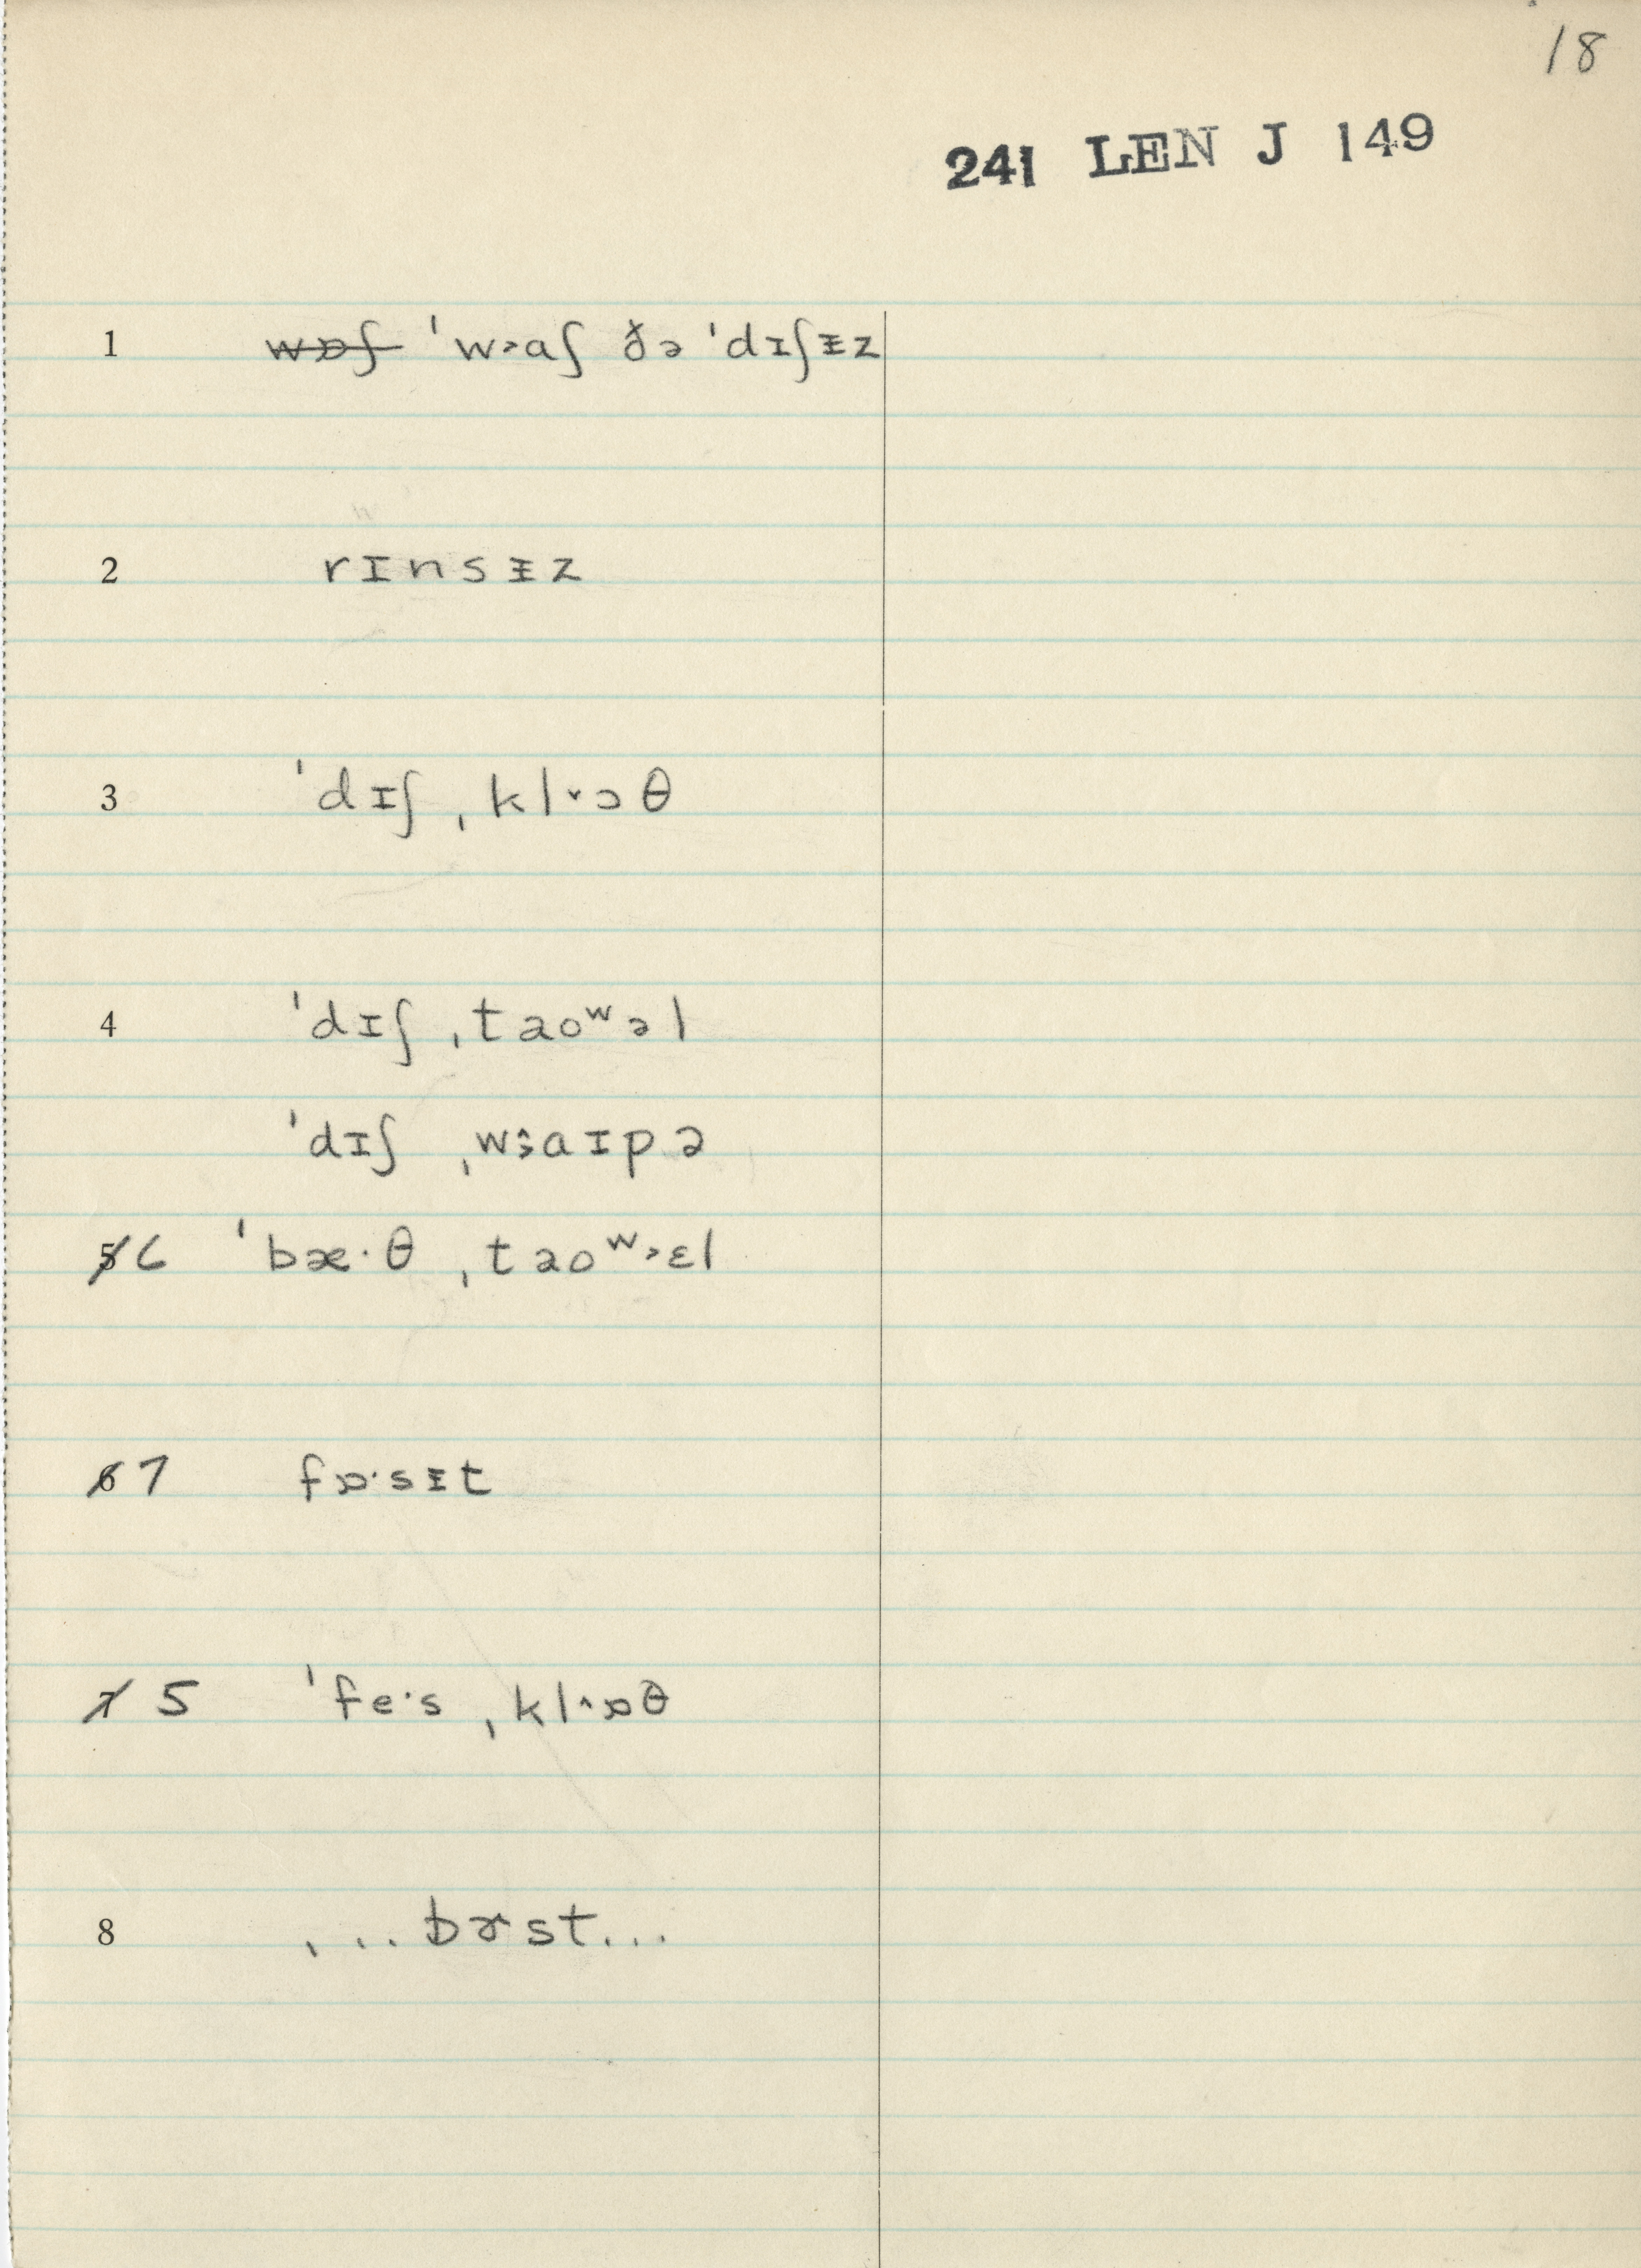 18
241 LEN J 149
1 wɒʃ ˈw˃aʃ ðə ˈdɪʃᵻz
2 rɪnsᵻz
3 ˈdɪʃ ˌkl˅ɔθ
4 ˈdɪʃ ˌtaoʷəl
ˈdɪʃ ˌwa̭ɪpə
5 6 ˈbæ·θ ˌtaoʷ˃ɛl
6 7 fɒ·sᵻt
7 5 ˈfe·s ˌkl˄ɒθ
8 ...bɚst...